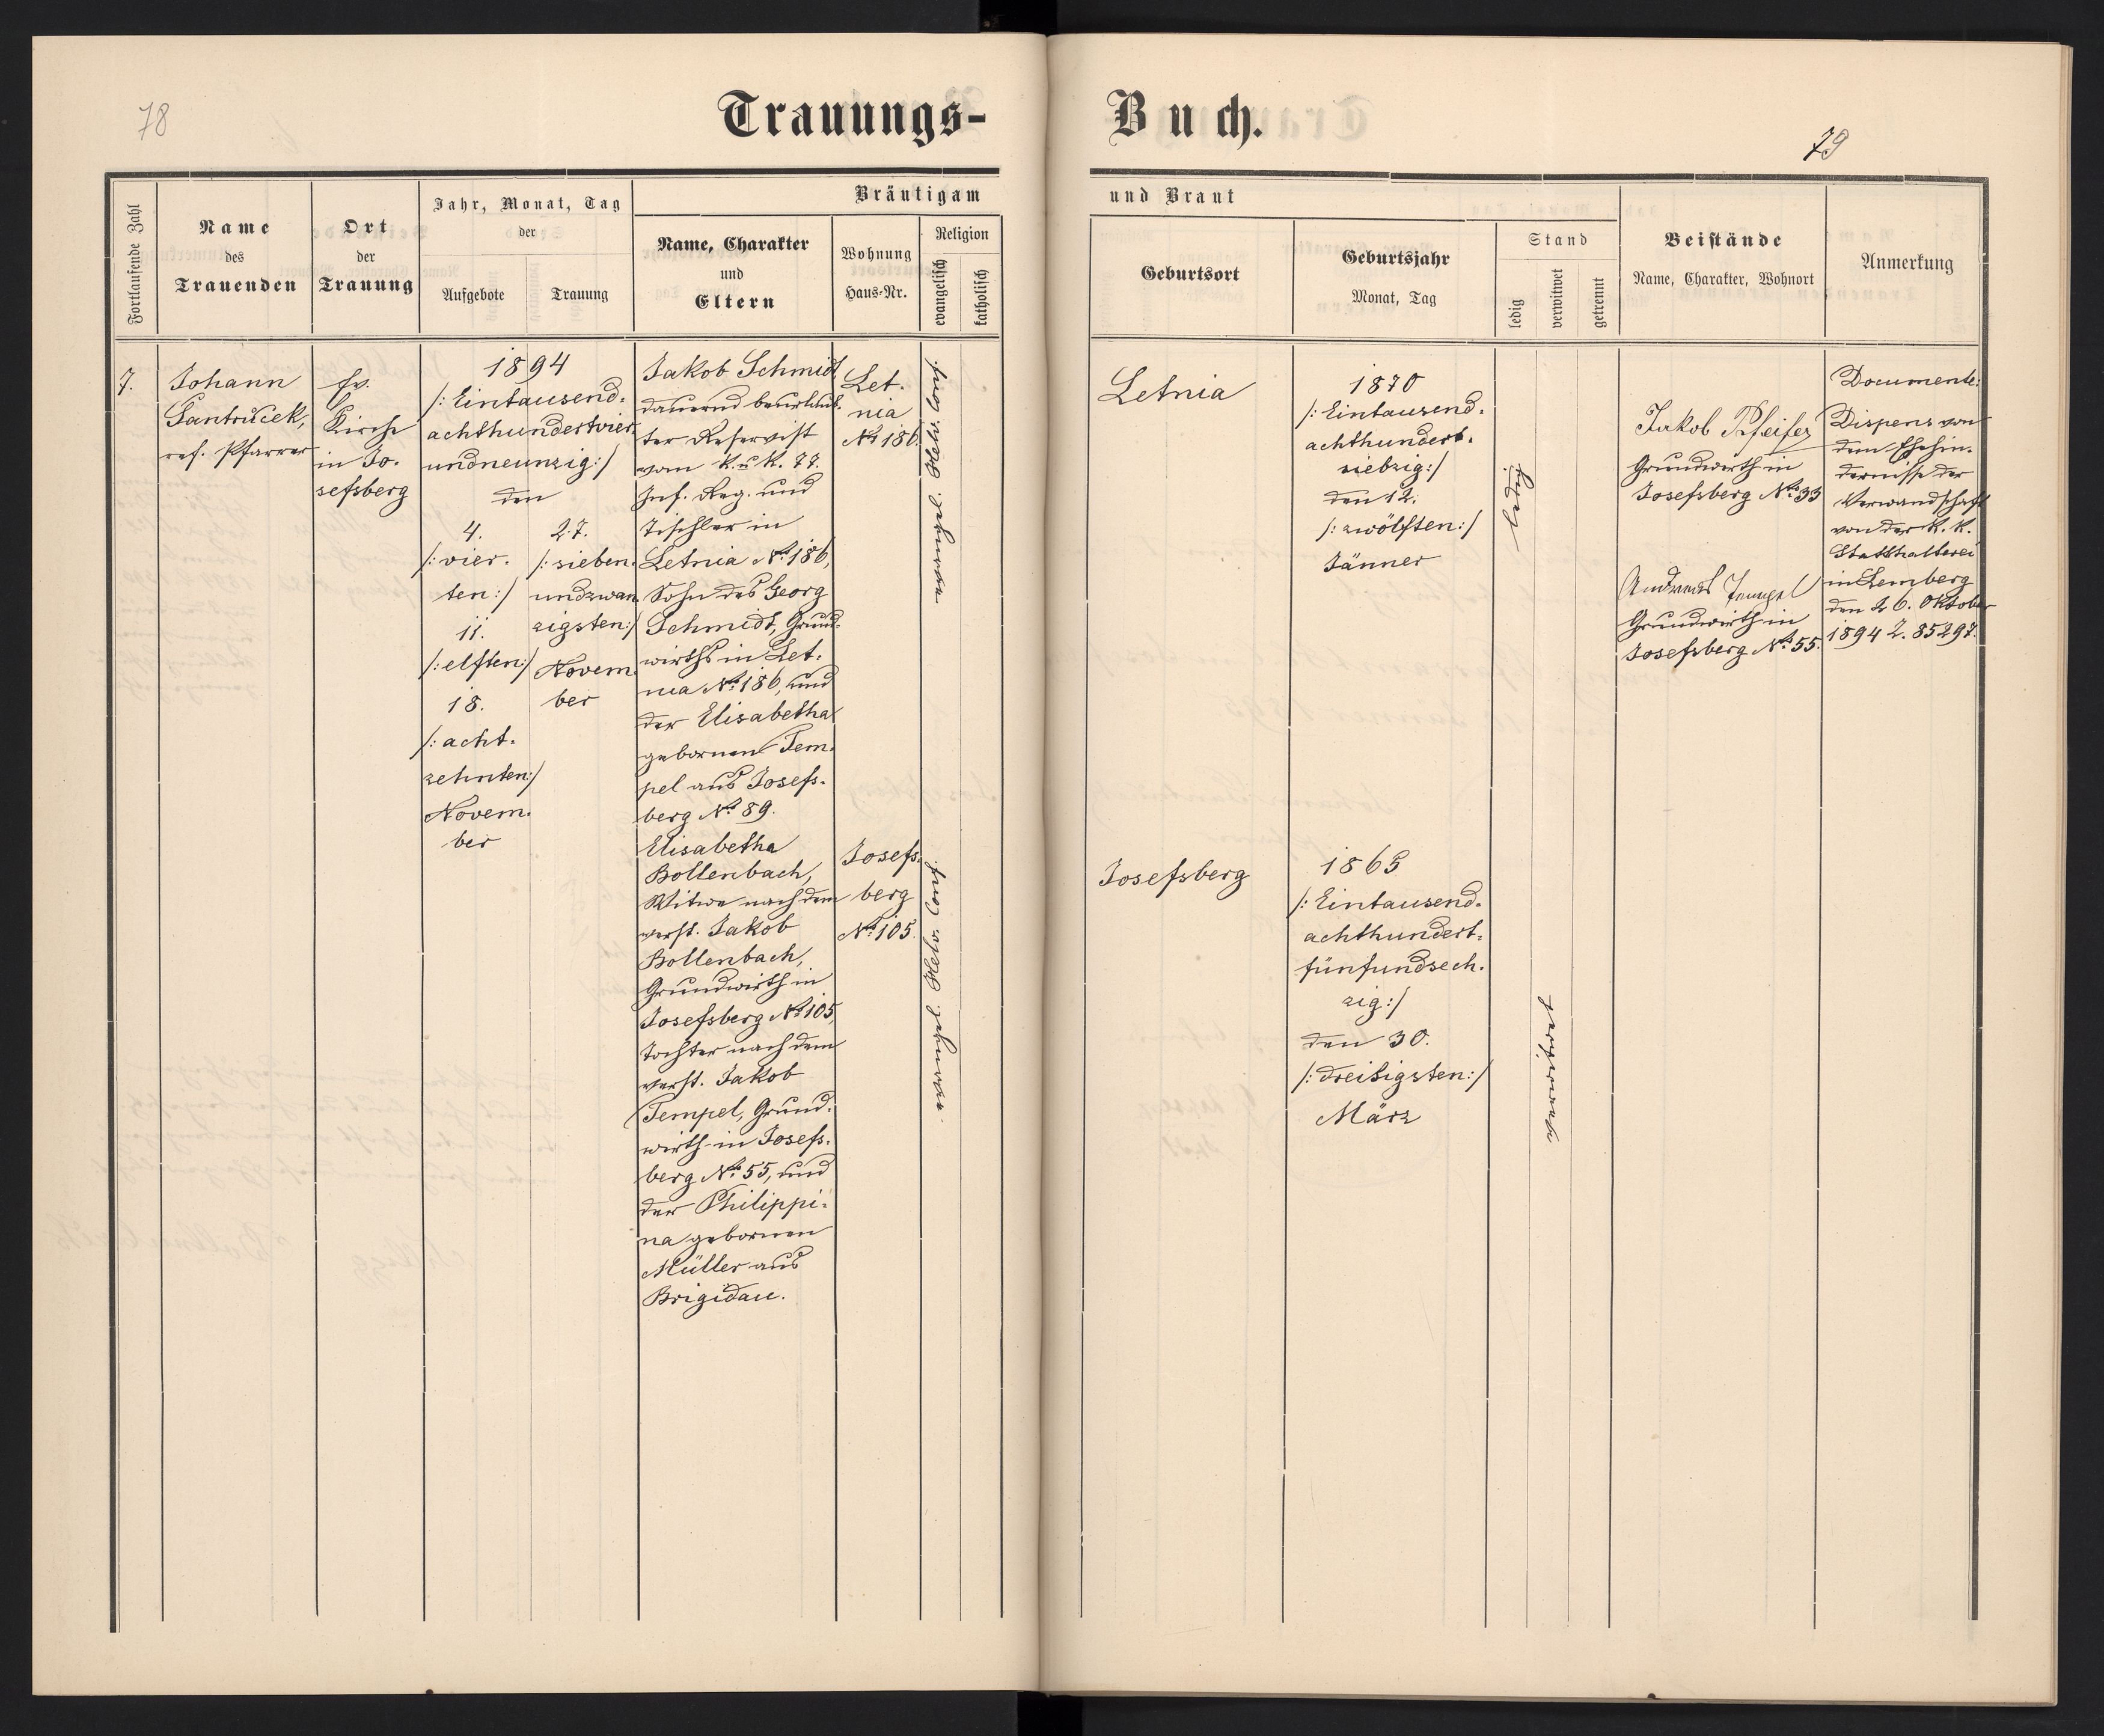 78
Trauungs-
Buch.
79
Fortlaufende Zahl
Name
des
Trauenden
Ort
der
Trauung
Jahr, Monat, Tag
der
Aufgebote
Trauung
Bräutigam
Name, Charakter
und
Eltern
Wohnung
Haus-Nr.
Religion
evangelisch
katholisch
und Braut
Geburtsort
Geburtsjahr
Monat, Tag
Stand
ledig
verwitwet
getrennt
Beistände
Name, Charakter, Wohnort
Anmerkung
7.
Johann
Šantrůček,
ref. Pfarrer
Ev.
Kirche
in Jo-
sefsberg
1894
/: Eintausend-
achthundertvier-
undneunzig :/
den
4.
/: vier-
ten :/
11.
/: elften :/
18.
/: acht-
zehnten :/
Novem-
ber
27.
/: sieben-
undzwan-
zigsten :/
Novem-
ber
Jakob Schmidt,
dauernd beurlaub-
ter Reservist
vom k. u. k. 77.
Inf. Reg. und
Tischler in
Letnia No. 186,
Sohn des Georg
Schmidt, Grund-
wirths in Let-
nia No. 186, und
der Elisabetha
gebornen Tem-
pel aus Josefs-
berg No. 89.
Let-
nia
No. 186.
evangel. Helv. Conf.
Letnia
1870
/: Eintausend-
achthundert-
siebzig :/
den 12.
/: zwölften :/
Jänner
ledig
Jakob Pfeifer
Grundwirth in
Josefsberg No. 33
Andreas Tempel
Grundwirth in
Josefsberg No. 55.
Documente:
Dispens von
dem Ehehin-
dernisse der
Verwandschaft
von der k. k.
Statthalterei
in Lemberg
den 26. Oktober
1894 Z. 85297.
Elisabetha
Bollenbach,
Witwe nach dem
verst. Jakob
Bollenbach,
Grundwirth in
Josefsberg No. 105,
Tochter nach dem
verst. Jakob
Tempel, Grund-
wirth in Josefs-
berg No. 55, und
der Philippi-
na gebornen
Müller aus
Brigidau.
Josefs-
berg
No. 105.
evangel. Helv. Conf.
Josefsberg
1865
/: Eintausend-
achthundert-
fünfundsech-
zig :/
den 30.
/: dreißigsten :/
März
verwitwet